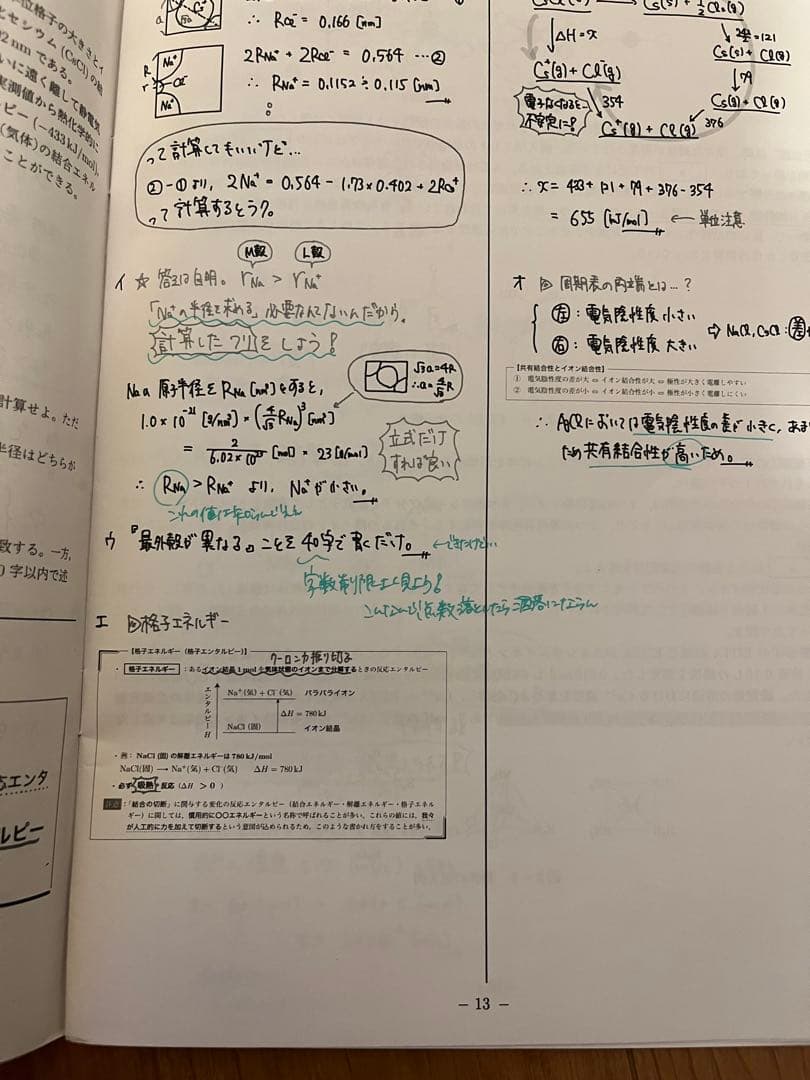 位格子の大きさとイ
セシウム (CsCl) の結
02 nm である。
いに遠く離して静電気
実測値から熱化学的に
ピー (−433 kJ/mol),
(気体) の結合エネル
ことができる。
計算せよ。ただ
半径はどちらが
致する。一方,
0字以内で述
応エンタ
ルピー
∴ RCl⁻ = 0.166 [nm]
2RNa⁺ + 2RCl⁻ = 0.564 …②
∴ RNa⁺ = 0.1152 ≒ 0.115 [nm]
Na⁺
Na⁺
R
r
Cl⁻
って計算してもいいけど…
②−①より, 2Na⁺ = 0.564 − 1.73×0.402 + 2RCs⁺
って計算するとラク。
M殻 L殻
イ ☆ 答えは自明。 rNa > rNa⁺
「Na⁺の半径を求める」必要なんてないんだから。
計算したフリをしよう!
Naの原子半径をRNa [nm]とすると,
√3a=4R
∴a=4/√3R
1.0×10⁻²¹ [g/nm³] × (4/√3 RNa)³ [nm³]
= 2/6.02×10²³ [mol] × 23 [g/mol]
立式だけ
すれば良い
∴ RNa > RNa⁺ より, Na⁺が小さい。
ウ 『最外殻が異なる。』ことを40字で書くだけ。
字数制限エ見よう!
エ 図格子エネルギー
【格子エネルギー (格子エンタルピー)】
クーロン力振り切る
・格子エネルギー:あるイオン結晶 1 mol を気体状態のイオンまで分解するときの反応エンタルピー
エンタルピー H
Na⁺(気) + Cl⁻(気) バラバライオン
ΔH = 780 kJ
NaCl (固) イオン結晶
・例:NaCl (固) の解離エネルギーは 780 kJ/mol
NaCl(固) ⟶ Na⁺(気) + Cl⁻(気) ΔH = 780 kJ
・必ず 吸熱 反応 (ΔH > 0)
注意:「結合の切断」に関与する変化の反応エンタルピー (結合エネルギー・解離エネルギー・格子エネル
ギー) に関しては, 慣用的に〇〇エネルギーという名称で呼ばれることが多い. これらの値には, 我々
が人工的に力を加えて切断するという意図が込められるため, このような書かれ方をすることが多い.
Cs(s) + ½Cl₂(g)
ΔH = x
Cs⁺(g) + Cl⁻(g)
Cs(s) + Cl(g)
79
Cs(g) + Cl(g)
電子なくなると…
不安定に!
354
376
Cs⁺(g) + Cl(g)
∴ x = 433 + 121 + 79 + 376 − 354
= 655 [kJ/mol] ← 単位注意
オ 図 周期表の両端とは…?
左:電気陰性度 小さい
右:電気陰性度 大きい
⇨ NaCl, CsCl : 差
【共有結合性とイオン結合性】
① 電気陰性度の差が大 ⇔ イオン結合性が大 ⇔ 極性が大きく電離しやすい
② 電気陰性度の差が小 ⇔ イオン結合性が小 ⇔ 極性が小さく電離しにくい
∴ AgClにおいては電気陰性度の差が小さく, あま
ため共有結合性が高いため。
− 13 −